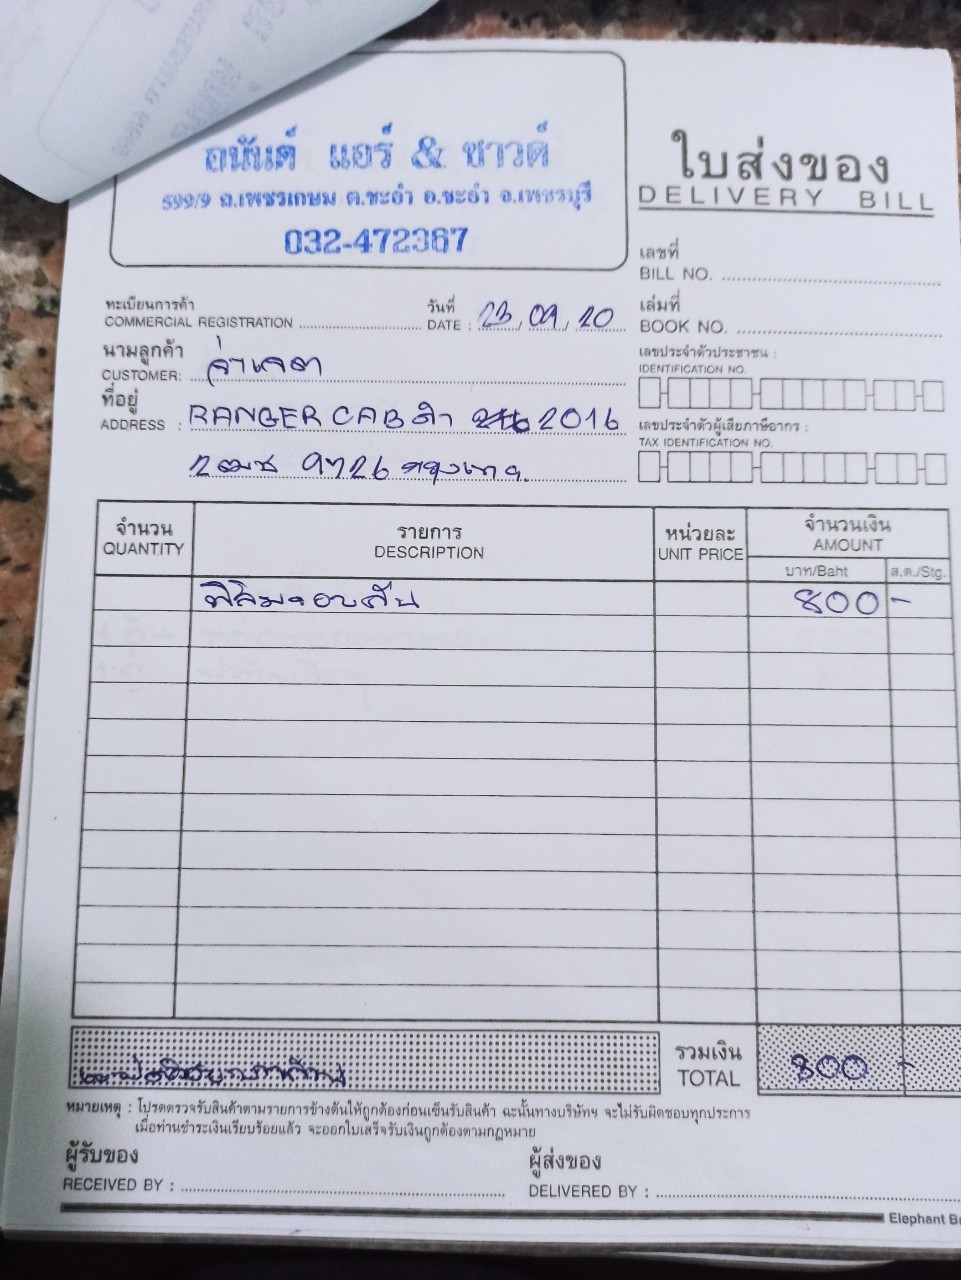 อนันต์ แอร์ & ซาวด์
599/9 ถ.เพชรเกษม ต.ชะอำ อ.ชะอำ จ.เพชรบุรี
032-472367
ใบส่งของ
DELIVERY BILL
เลขที่
BILL NO.
ทะเบียนการค้า
COMMERCIAL REGISTRATION
วันที่
DATE : 23/09/20
เล่มที่
BOOK NO.
นามลูกค้า
CUSTOMER:
เลขประจำตัวประชาชน :
IDENTIFICATION NO.
ที่อยู่
ADDRESS : RANGER CAB ดำ 2016
เลขประจำตัวผู้เสียภาษีอากร :
TAX IDENTIFICATION NO.
2ฒช 9726 กรุงเทพ
จำนวน
QUANTITY
รายการ
DESCRIPTION
หน่วยละ
UNIT PRICE
จำนวนเงิน
AMOUNT
บาท/Baht ส.ต./Stg.
ฟิล์มรอบคัน 800 -
รวมเงิน
TOTAL 800 -
หมายเหตุ : โปรดตรวจรับสินค้าตามรายการข้างต้นให้ถูกต้องก่อนเซ็นรับสินค้า ฉะนั้นทางบริษัทฯ จะไม่รับผิดชอบทุกประการ
เมื่อท่านชำระเงินเรียบร้อยแล้ว จะออกใบเสร็จรับเงินถูกต้องตามกฎหมาย
ผู้รับของ
RECEIVED BY :
ผู้ส่งของ
DELIVERED BY :
Elephant